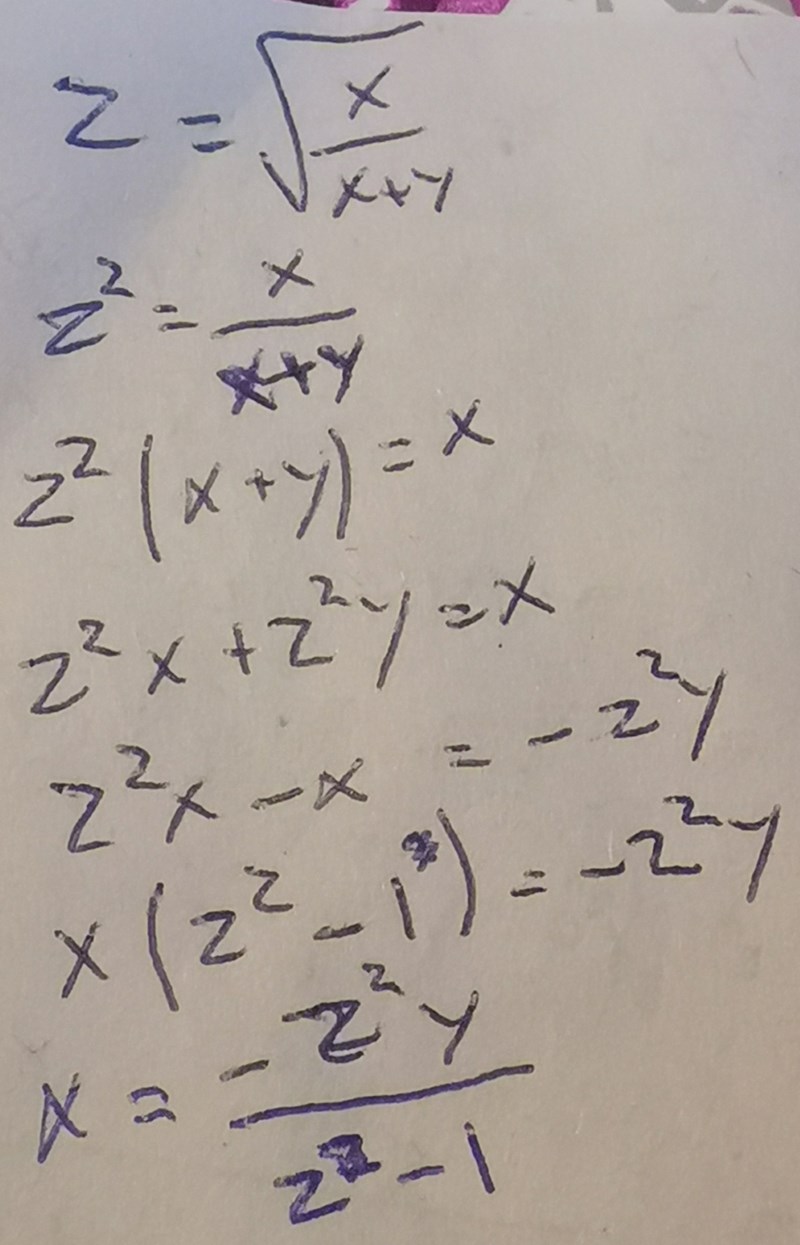 z = √(x/(x+y))
z² = x/(x+y)
z²(x+y) = x
z²x + z²y = x
z²x - x = -z²y
x(z² - 1) = -z²y
x = -z²y/(z² - 1)